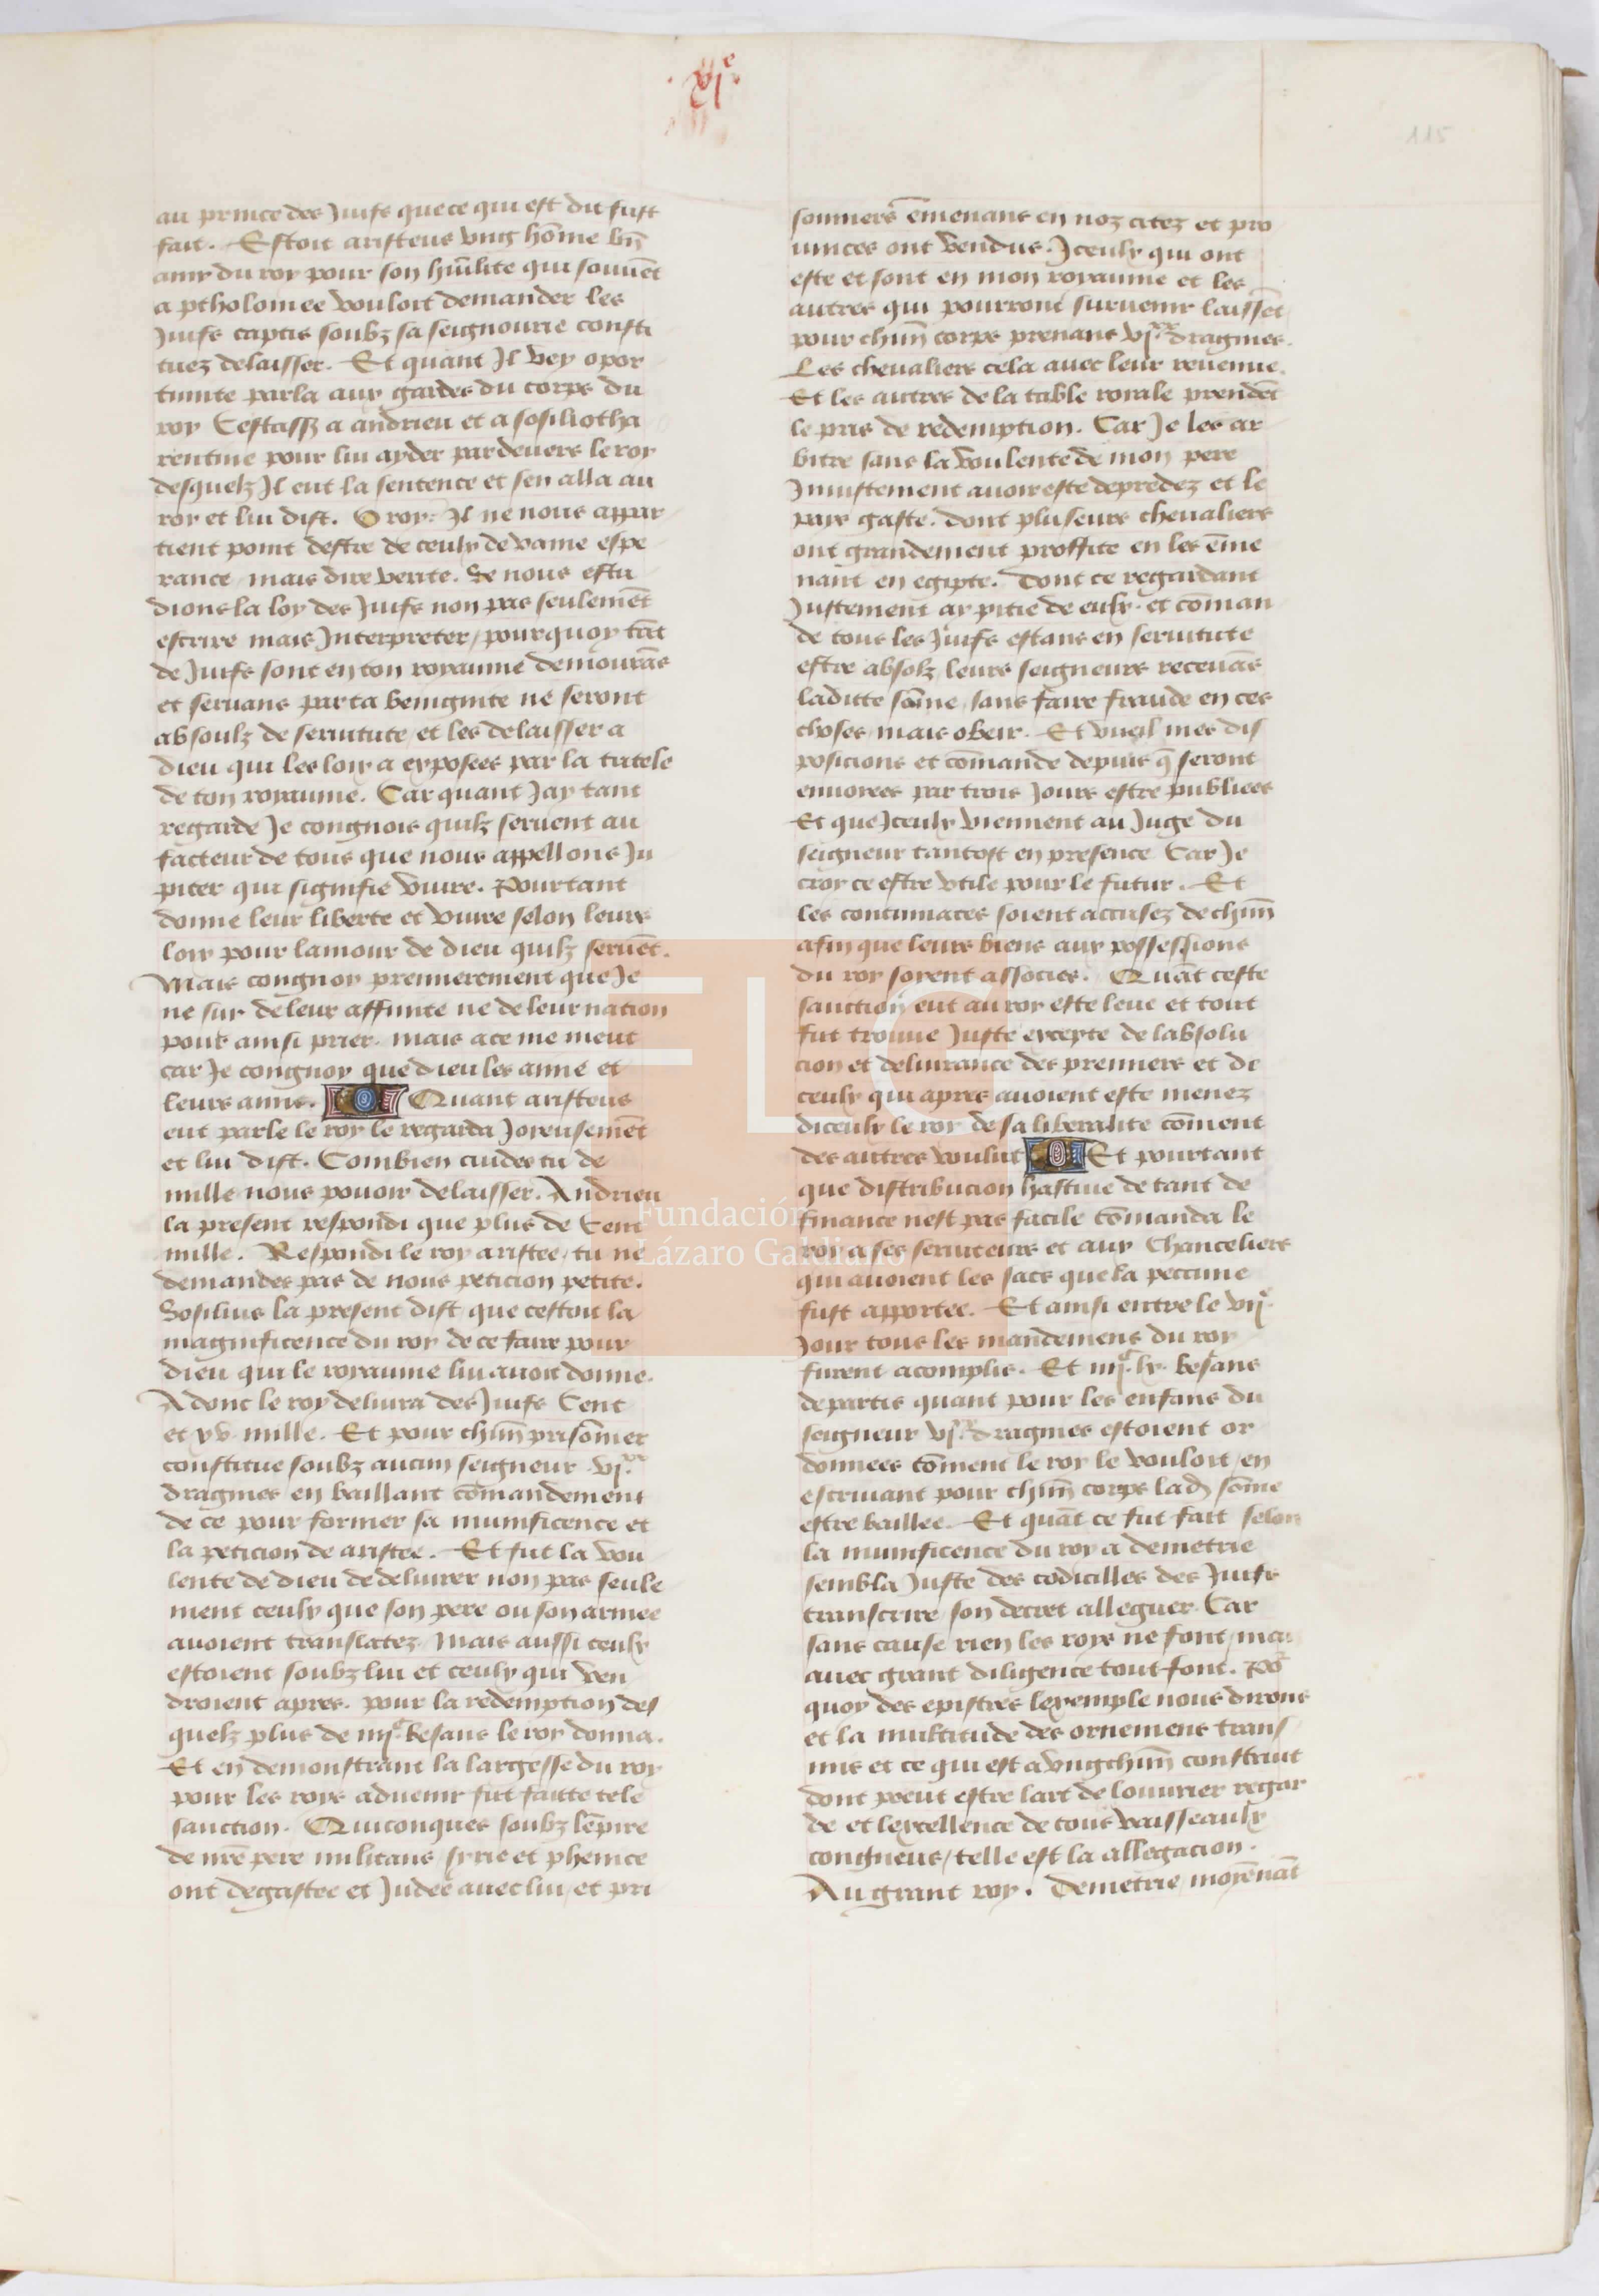 .vjᵉ.
115
au prince des Juifs que ce qui est dit fust
fait. Estoit aristeus vng hōme bn̄
amy du roy pour son hūilite qui souuēt
a ptholomee vouloit demander les
Juifs captis soubz sa seignourie consti
tuez delaisser. Et quant Il vey opor
tunite parla aux gardes du corps du
roy Cestassz a andrieu et a sosiliotha
rentine pour lui ayder par deuers le roy
desquelz Il eut la sentence et sen alla au
roy et lui dist. O roy: Il ne nous appar
tient point destre de ceulx de vaine espe
rance mais dire verite. Se nous estu
dions la loy des Juifs non pas seulemēt
escrire mais Interpreter/ pourquoy tāt
de Juifs sont en ton royaume demourās
et seruans par ta benignite ne seront
absoulz de seruitute/ et les delaisser a
dieu qui les loix a exposees par la tutele
de ton royaume. Car quant Jay tant
regarde Je congnois quilz seruent au
facteur de tous que nous appellons Ju
piter qui signifie viure. Pourtant
donne leur liberte et viure selon leurs
loix pour lamour de dieu quilz seruēt.
Mais congnoy premierement que Je
ne suy de leur affinite ne de leur nation
pour ainsi prier. mais a ce me meut
car Je congnoy que dieu les aime et
leurs amis. Quant aristeus
eut parle le roy le regarda Joieusemēt
et lui dist. Combien cuides tu de
mille nous pouoir delaisser. Andrieu
la present respondi que plus de Cent
mille. Respondi le roy aristee/ tu ne
demandes pas de nous peticion petite.
Sosilius la present dist que cestoit la
magnificence du roy de ce faire pour
dieu qui le royaume lui auoit donne.
Adont le roy deliura des Juifs Cent
et xv. mille. Et pour chūn prisōnier
constitue soubz aucun seigneur .vj.ˣˣ
dragmes en baillant cōmandement
de ce pour former sa munificence et
la peticion de aristee. Et fut la vou
lente de dieu de deliurer non pas seule
ment ceulx que son pere ou son armee
auoient translatez. Mais aussi ceulx
estoient soubz lui et ceulx qui ven
droient apres. pour la redemption des
quelz plus de iiijᶜ besans le roy donna.
Et en demonstrant la largesse du roy
pour les roys aduenir fut faitte tele
sanction. Quiconques soubz lēpire
de nrē pere militans syrie et phenice
ont degastee et Judee auec lui/ et pri
sonniers ēmenans en noz citez et pro
uinces ont vendus. Iceulx qui ont
este et sont en mon royaume et les
autres qui pourront suruenir laissēt
pour chūn corps prenans vjˣˣ dragmes.
Les cheualiers cela auec leur reuenue.
Et les autres de la table roiale prendēt
le pris de redemption. Car Je les ar
bitre sans la voulente de mon pere
Iniustement auoir este depredez et le
pays gaste. dont pluseurs cheualiers
ont grandement proffite en les ēme
nant en egipte. Dont ce regardant
Justement ay pitie de eulx. et cōman
de tous les Juifs estans en seruitute
estre absolz leurs seigneurs receuās
laditte sōme/ sans faire fraude en ces
choses/ mais obeir. Et vueil mes dis
posicions et cōmande depuis q̄ seront
enuoiees par trois Jours estre publiees
Et que Iceulx viennent au Juge du
seigneur tantost en presence Car Je
croy ce estre vtile pour le futur. Et
les contumaces soient accusez de chūn
afin que leurs biens aux possessions
du roy soient associes. Quāt ceste
sanction eut au roy este leue et tout
fut trouue Juste excepte de labsolu
cion et deliurance des premiers et de
ceulx qui apres auoient este menez
diceulx le roy de sa liberalite cōment
des autres voulut Et pourtant
que distribucion hastiue de tant de
finance nest pas facile cōmanda le
roy a ses seruiteurs et aux Chanceliers
qui auoient les sacs que la peccune
fust apportee. Et ainsi entre le vijᵉ
Jour tous les mandemens du roy
furent acomplis. Et iiijᶜ. lx. besans
departis quant pour les enfans du
seigneur vjˣˣ dragmes estoient or
donnees cōment le roy le vouloit/ en
escriuant pour chūn corps lad̄ sōme
estre baillee. Et quāt ce fut fait selon
la munificence du roy a demetrie
sembla Juste des codicilles des Juifs
transcrire/ son decret alleguer. Car
sans cause rien les roys ne font/ mais
auec grant diligence tout font. Por
quoy des epistres lexemple nous dirons
et la multitude des ornemens trans
mis et ce qui est a vngchūn construit
dont peut estre lart de louurier regar
de et lexcellence de tous vaisseaulx
congneus/ telle est la allegacion.
Au grant roy. Demetrie moyēnāt
FLG
Fundación
Lázaro Galdiano